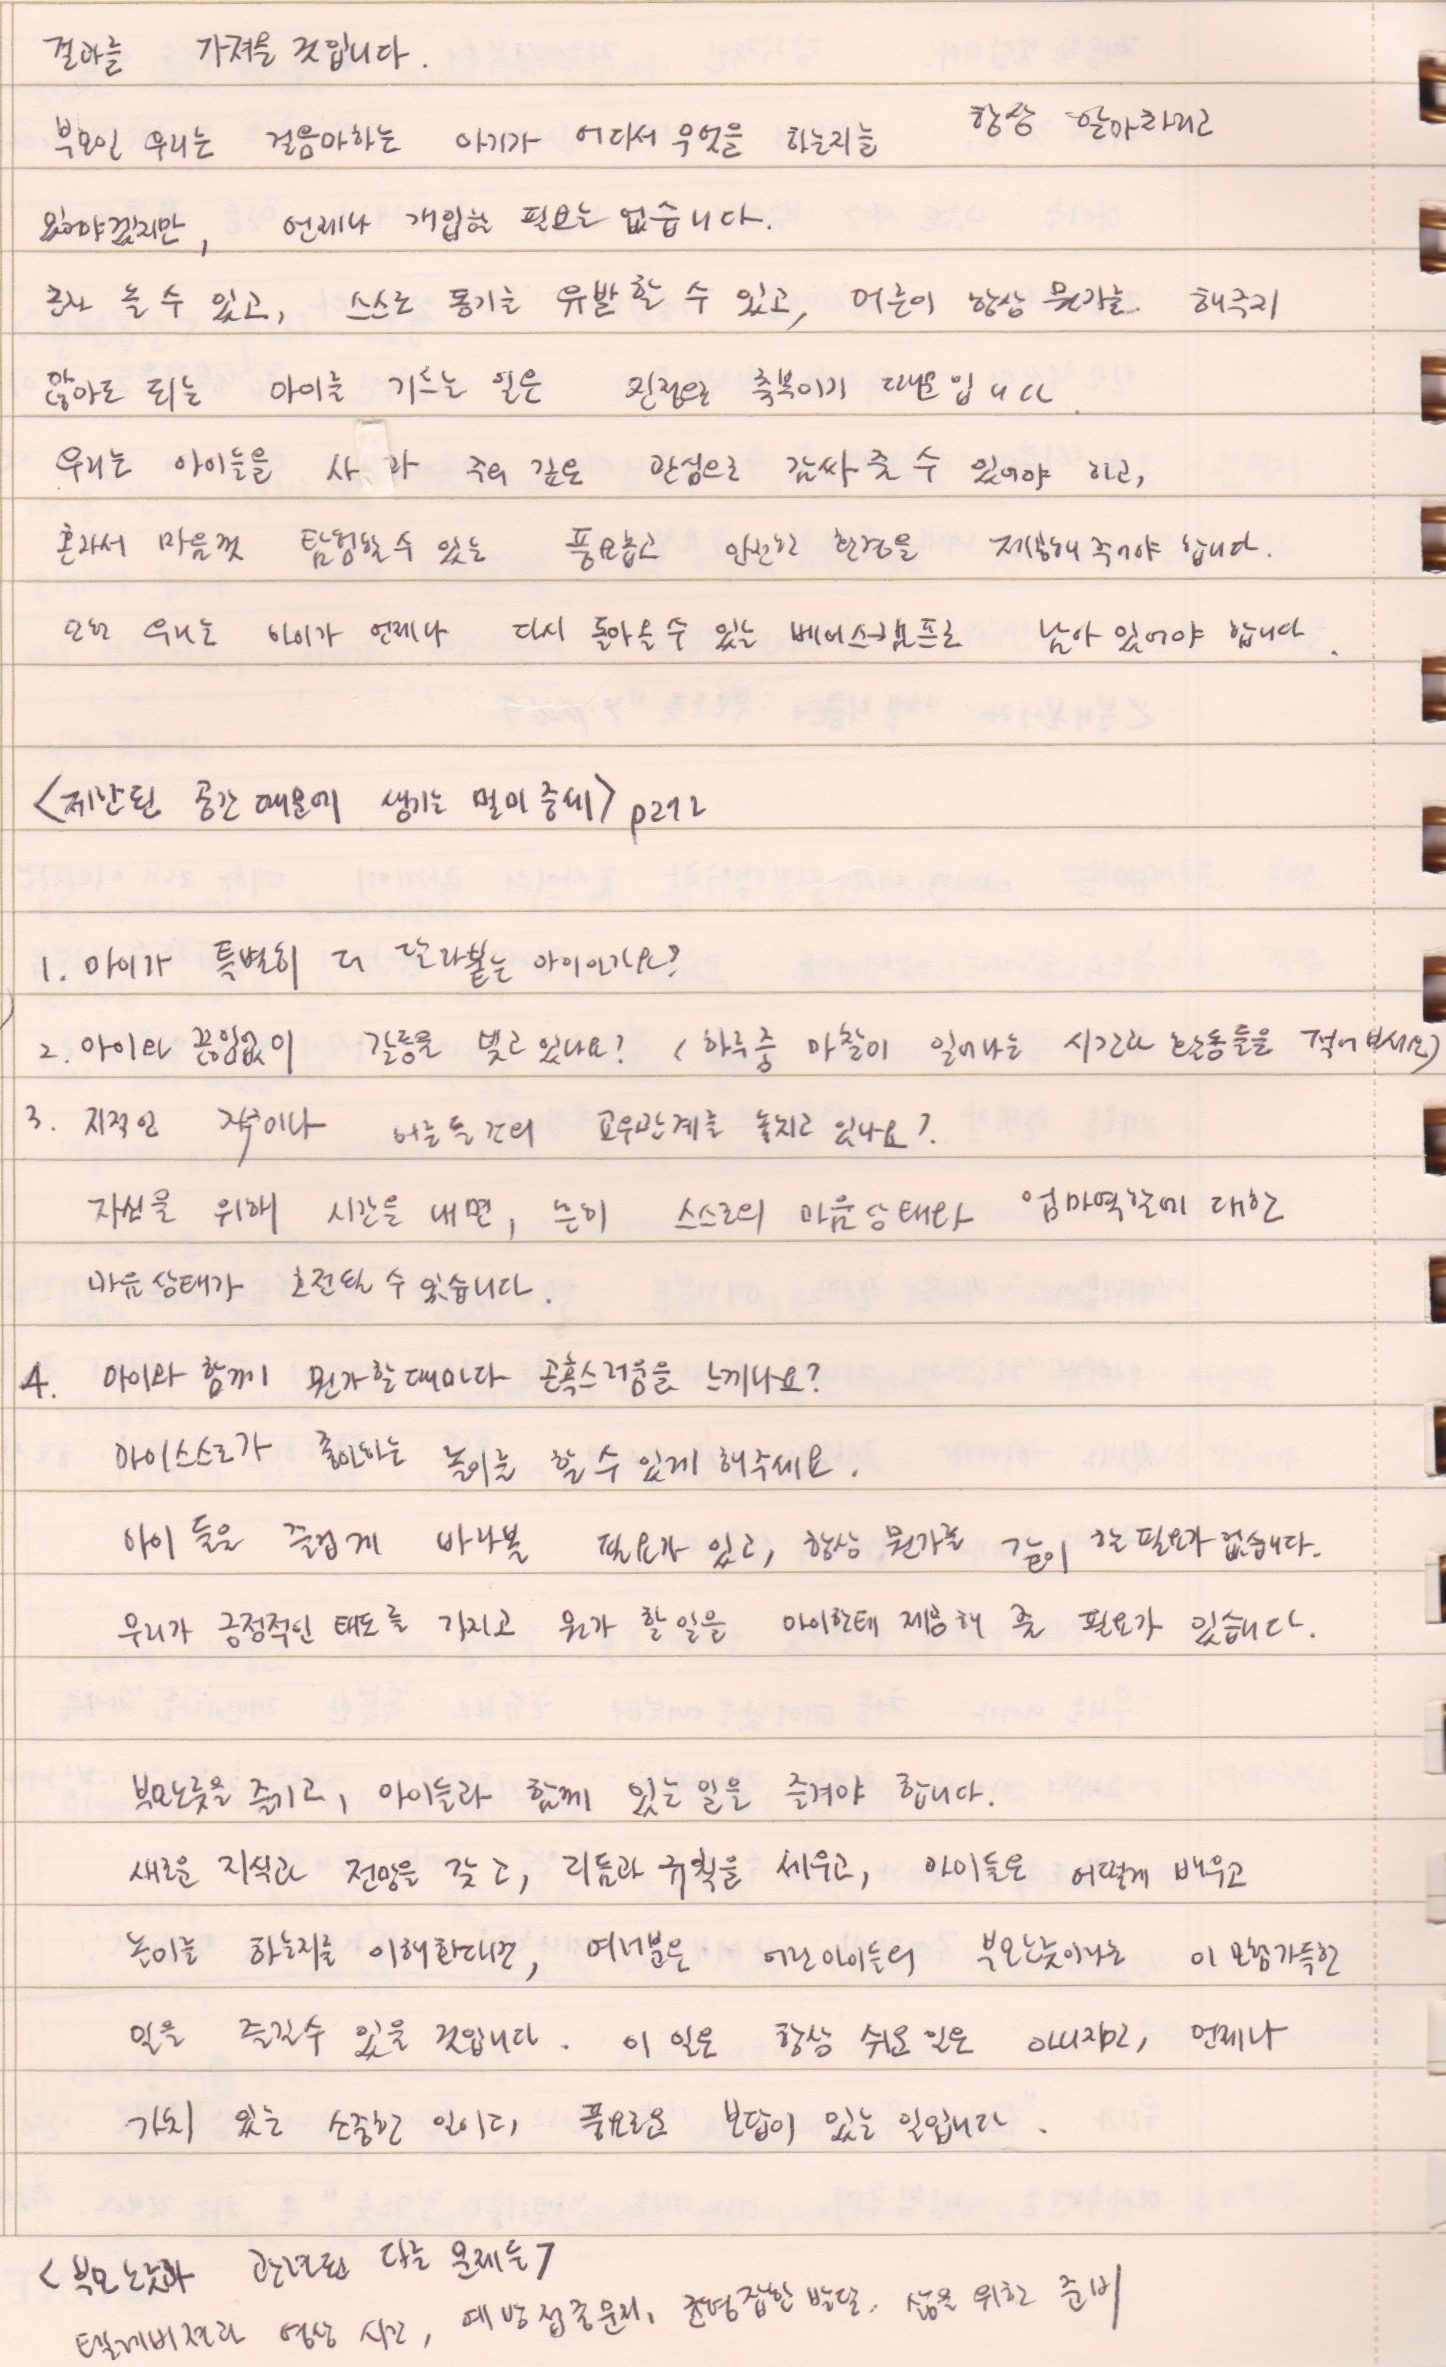 결과를 가져올 것입니다.
부모인 우리는 걸음마하는 아기가 어디서 무엇을 하는지를 항상 알아차리고
있어야겠지만, 언제나 개입할 필요는 없습니다.
혼자 놀 수 있고, 스스로 동기를 유발할 수 있고, 어른이 항상 뭔가를 해주지
않아도 되는 아이를 기르는 일은 진정으로 축복이기 때문입니다.
우리는 아이들을 사 과 주의 깊은 관심으로 감싸 줄 수 있어야 하고,
혼자서 마음껏 탐험할 수 있는 풍요롭고 안전한 환경을 제공해 주어야 합니다.
또한 우리는 아이가 언제나 다시 돌아올 수 있는 베이스캠프로 남아 있어야 합니다.
<제한된 공간 때문에 생기는 멀미 증세> p272
1. 아이가 특별히 더 달라붙는 아이인가요?
2. 아이와 끊임없이 갈등을 빚고 있나요? (하루중 마찰이 일어나는 시간과 활동들을 적어보세요)
3. 지적인 자극이나 어른들간의 교우관계를 놓치고 있나요?
자신을 위해 시간을 내면, 흔히 스스로의 마음상태와 엄마역할에 대한
마음상태가 호전될 수 있습니다.
4. 아이와 함께 뭔가 할 때마다 곤혹스러움을 느끼나요?
아이스스로가 좋아하는 놀이를 할 수 있게 해주세요.
아이 들을 즐겁게 바라볼 필요가 있고, 항상 뭔가를 같이 할 필요가 없습니다.
우리가 긍정적인 태도를 가지고 뭔가 할 일을 아이한테 제공해 줄 필요가 있습니다.
부모노릇을 즐기고, 아이들과 함께 있는 일을 즐겨야 합니다.
새로운 지식과 전망을 갖고, 리듬과 규칙을 세우고, 아이들은 어떻게 배우고
놀이를 하는지를 이해한다면, 여러분은 어린아이들의 부모노릇이라는 이 모험가득한
일을 즐길수 있을 것입니다. 이 일은 항상 쉬운 일은 아니지만, 언제나
가치 있는 소중한 일이며, 풍요로운 보답이 있는 일입니다.
<부모노릇과 관련된 다른 문제들>
텔레비전과 영상 시간, 예방접종문제, 균형잡힌 발달, 삶을 위한 준비